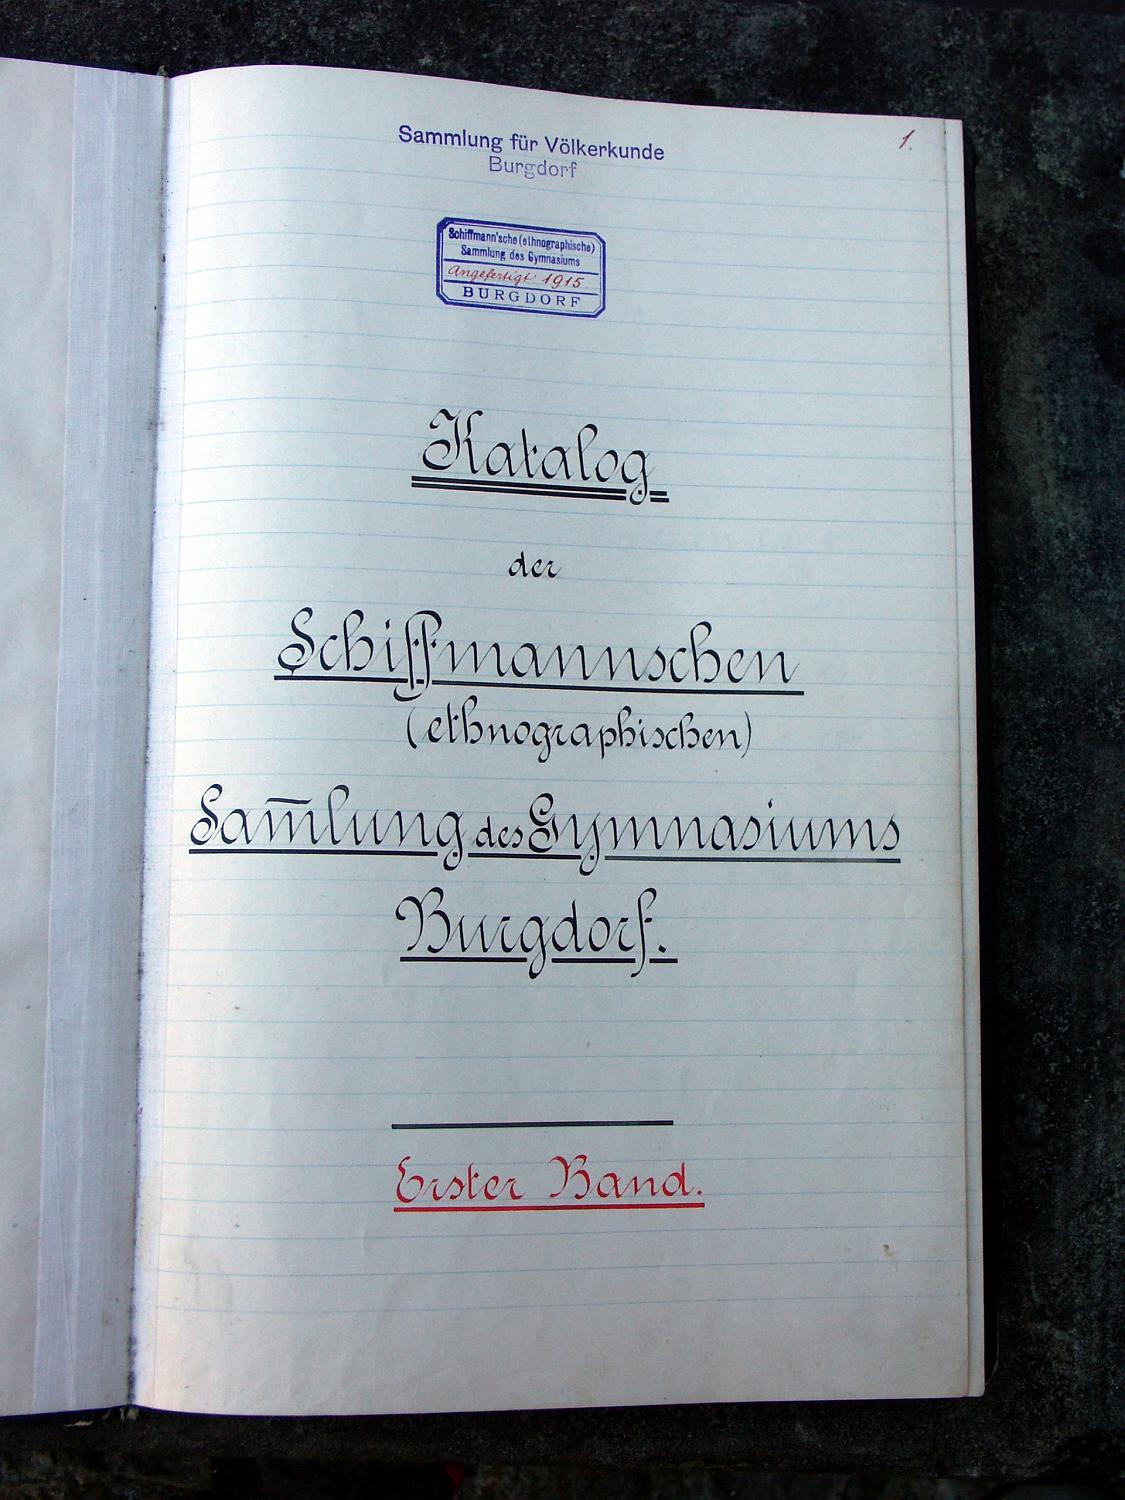 Sammlung für Völkerkunde
Burgdorf
1.
Schiffmann'sche (ethnographische)
Sammlung des Gymnasiums
Angefertigt 1915
BURGDORF
Katalog
der
Schiffmannschen
(ethnographischen)
Sam̅lung des Gymnasiums
Burgdorf.
Erster Band.